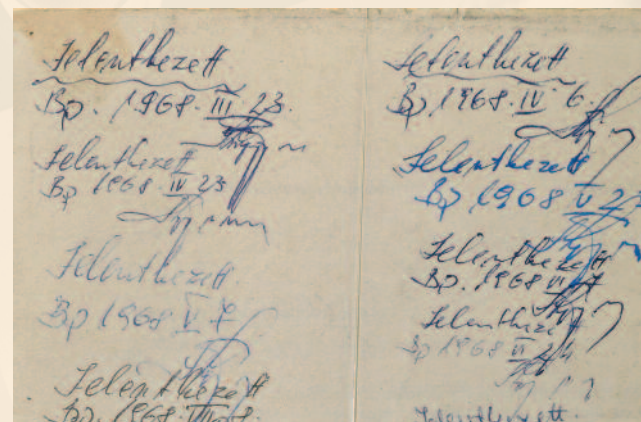 Jelentkezett
Bp. 1968. III 23.
Jelentkezett
Bp 1968 IV 23
Jelentkezett.
Bp 1968 V 7
Jelentkezett
Bp. 1968. VII. 8.
Jelentkezett
Bp 1968. IV 6.
Jelentkezett
Bp 1968 V
Jelentkezett
Bp. 1968 VI 7
Jelentkezett
Bp 1968 VI 24
Jelentkezett.